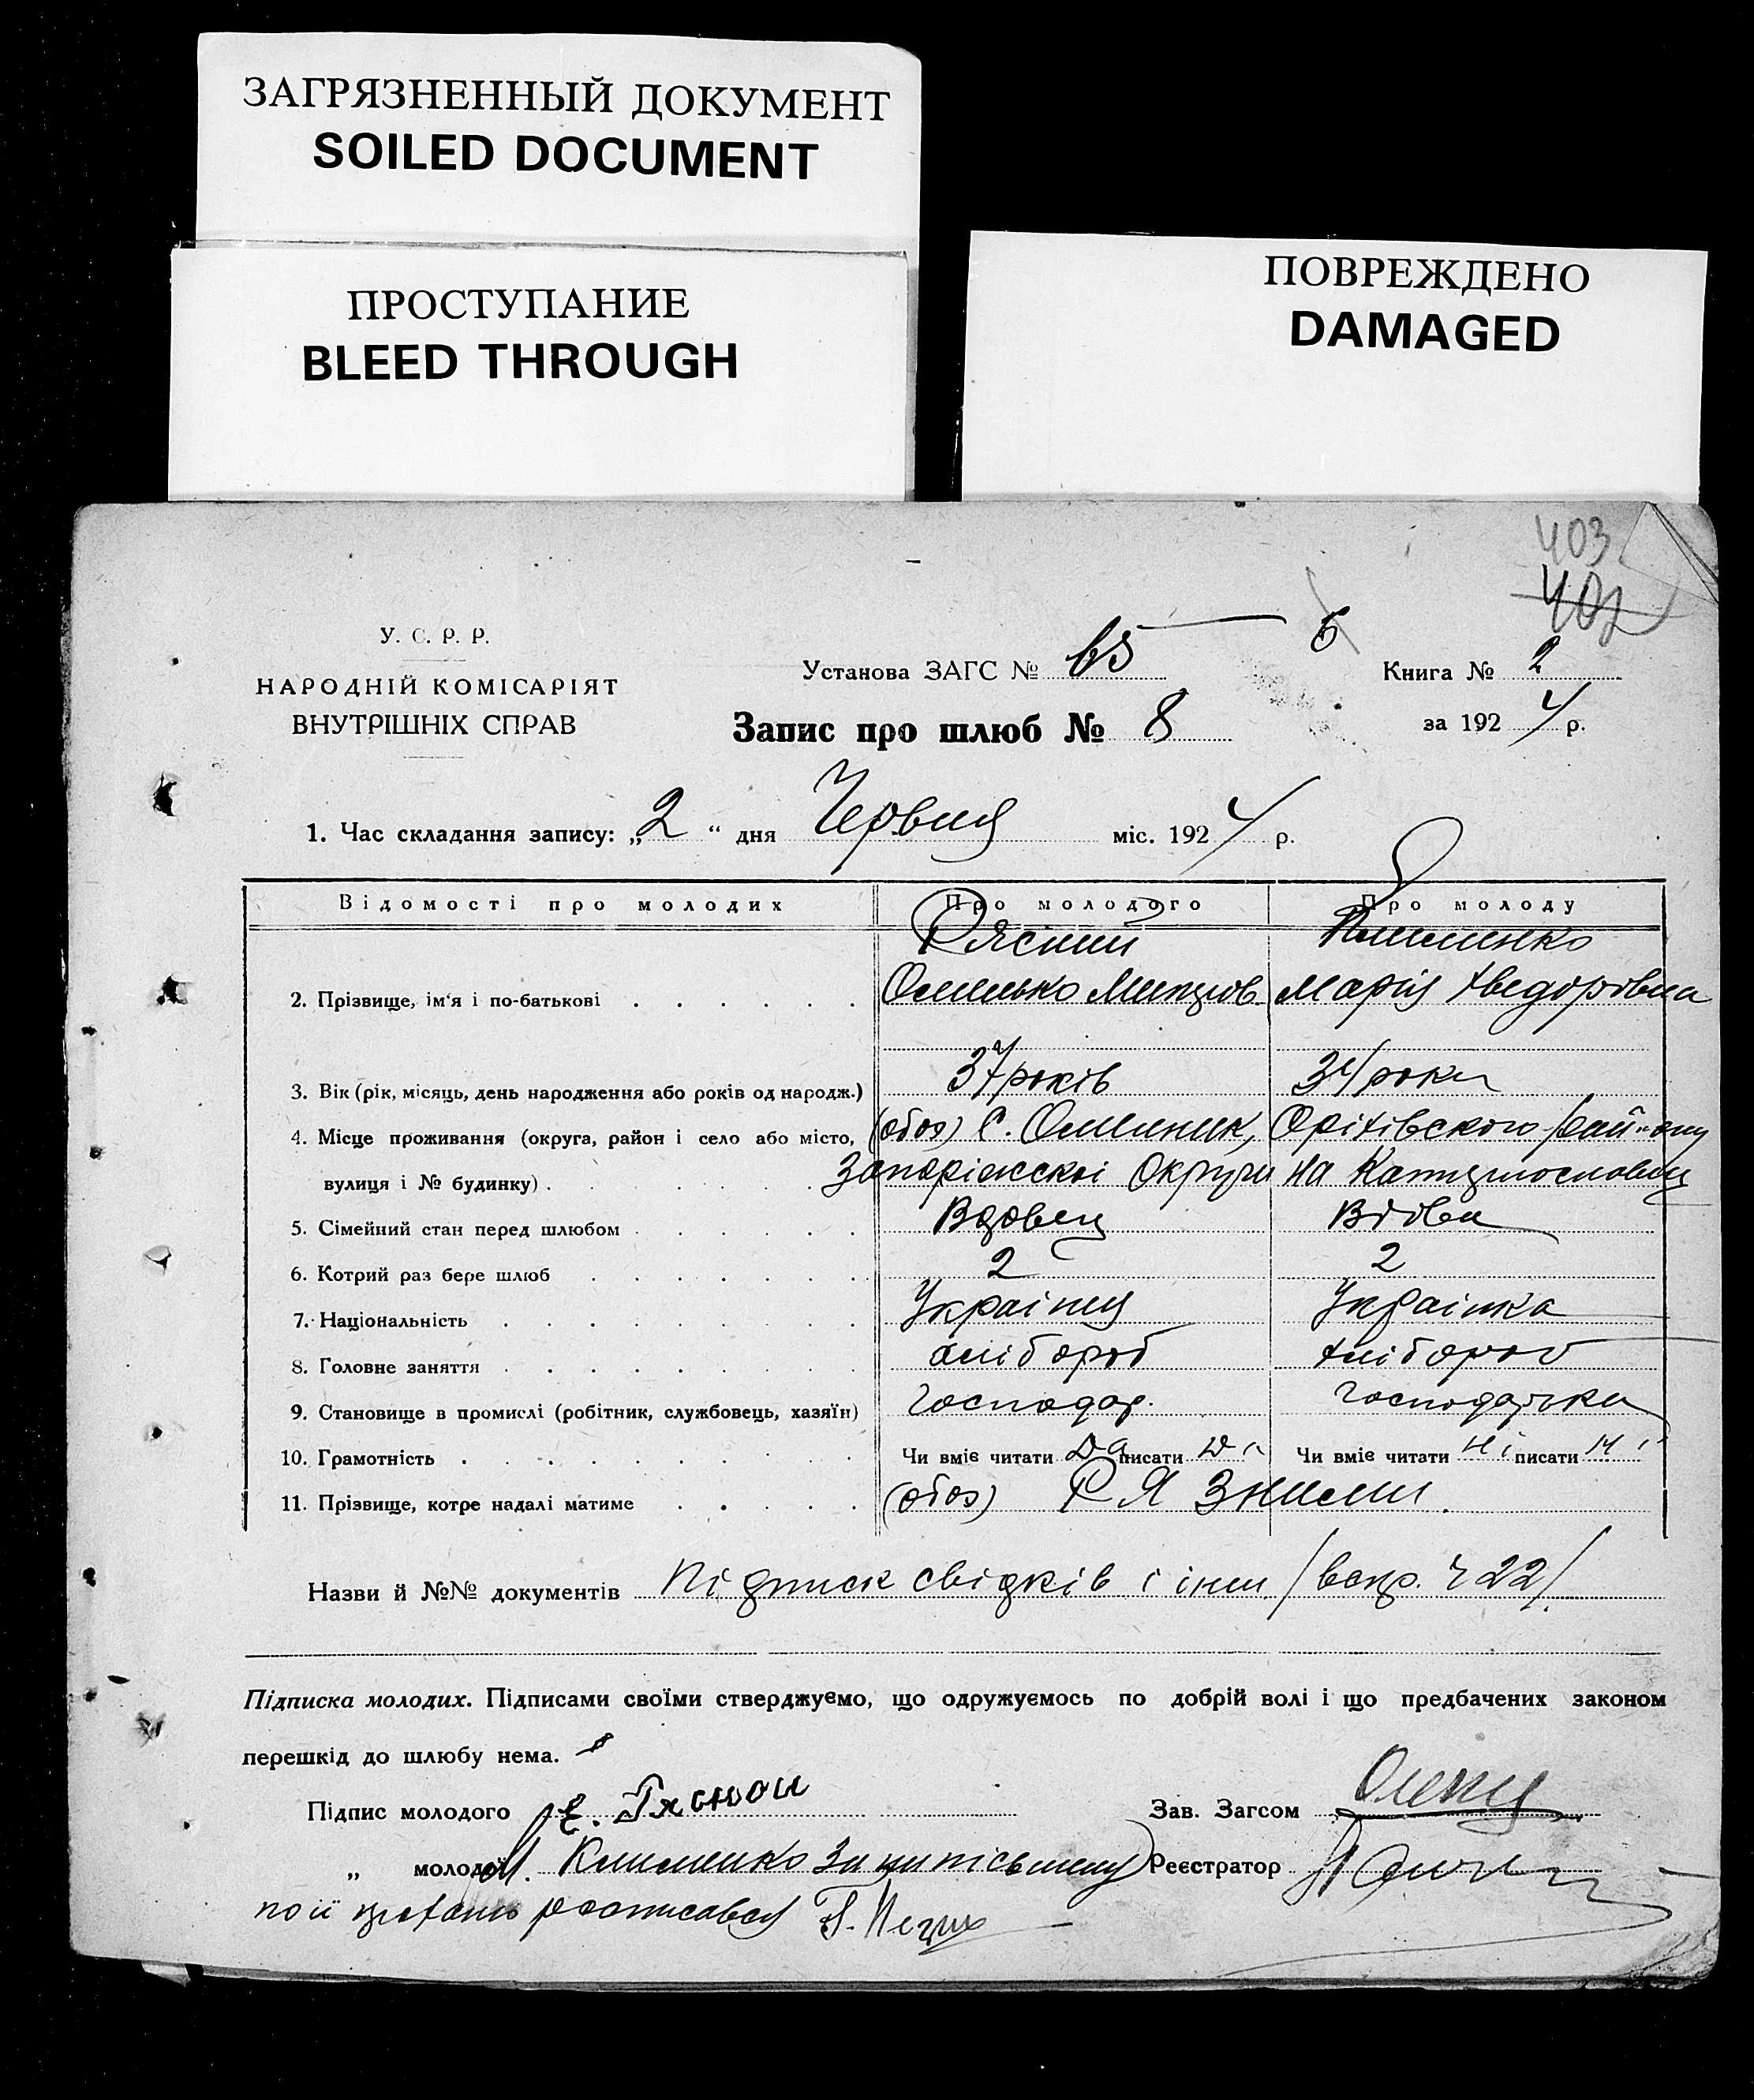 ЗАГРЯЗНЕННЫЙ ДОКУМЕНТ
SOILED DOCUMENT
ПРОСТУПАНИЕ
BLEED THROUGH
ПОВРЕЖДЕНО
DAMAGED
403
402
У. С. Р. Р.
НАРОДНІЙ КОМІСАРІЯТ
ВНУТРІШНІХ СПРАВ
Установа ЗАГС № 65 6
Книга № 2
Запис про шлюб № 8
за 1924 р.
1. Час складання запису: „2“ дня Червня міс. 1924 р.
Відомості про молодих Про молодого Про молоду
Клименко
2. Прізвище, ім'я і по-батькові Марія Хведоровна
3. Вік (рік, місяць, день народження або років од народж.) 37 років 34 роки
4. Місце проживання (округа, район і село або місто, (обоє) С. Омельник, Оріхівского району
вулиця і № будинку) Запоріжскоі Округи на
5. Сімейний стан перед шлюбом Вдовец Вдова
6. Котрий раз бере шлюб 2 2
7. Національність Украінец Украінка
8. Головне заняття хлібороб хлібороб
9. Становище в промислі (робітник, службовець, хазяїн) Господар. Господарка
10. Грамотність Чи вміє читати Да писати Да Чи вміє читати Ні писати Ні
11. Прізвище, котре надалі матиме (обоє)
Назви й №№ документів Підписк свідків і інш. /вснр. ч 22/.
Підписка молодих. Підписами своїми стверджуємо, що одружуємось по добрій волі і що предбачених законом
перешкід до шлюбу нема.
Підпис молодого
Зав. Загсом
„ молодої М. Клименко За
Реєстратор
по іі росписався